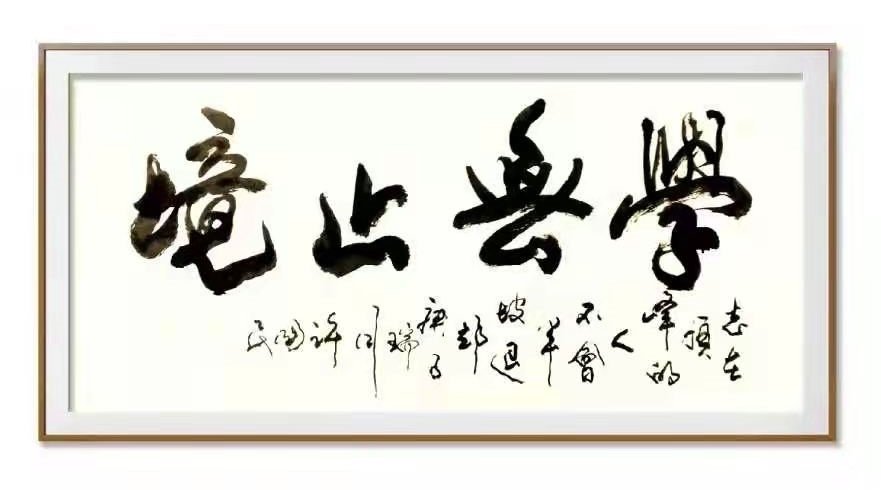 學無止境
志在
頂
峰的
人
不會
半
坡退
却
庚子
瑞
許
國
民